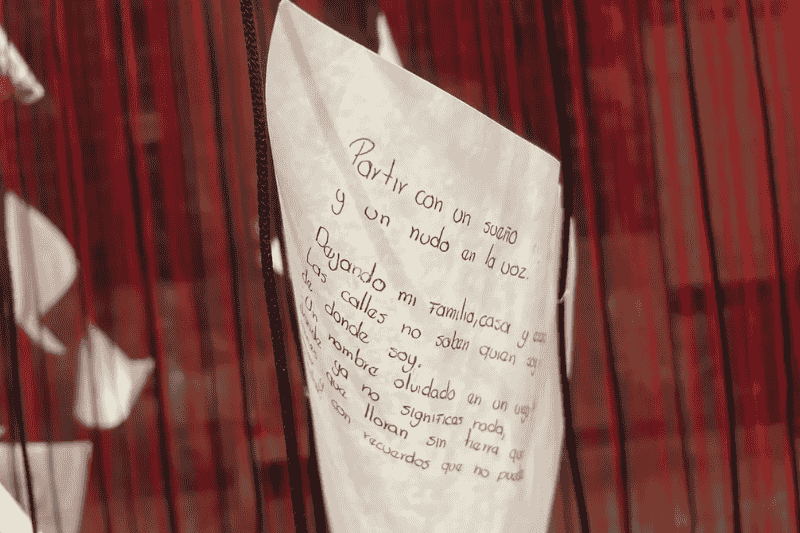 Partir con un sueño
y un nudo en la voz.
Dejando mi familia, casa y
Las calles no saben quien soy
de donde soy.
Un nombre olvidado en un
ya no significas nada,
que lloran sin tierra que
y con recuerdos que no